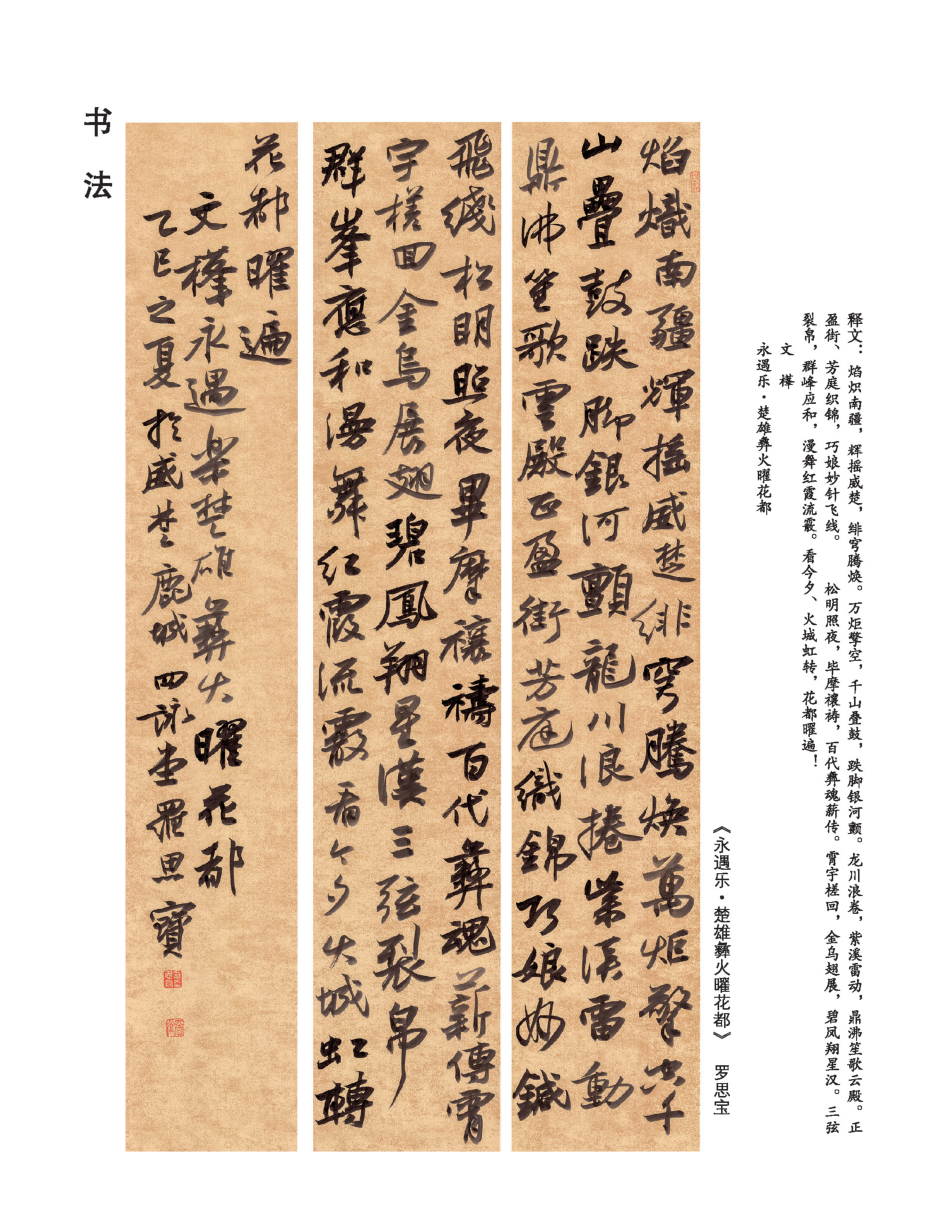 书法
焰熾南疆輝摇威楚緋穹騰焕萬炬擎空千
山疊鼓跌脚銀河顫龍川浪捲紫溪雷動
鼎沸笙歌雲殿正盈街芳庭織錦巧娘妙鍼
飛綫松明照夜畢摩禳禱百代彝魂薪傳霄
宇槎回金烏展翅碧鳳翔星漢三弦裂帛
群峯應和漫舞红霞流霰看今夕火城虹轉
花都曜遍
文 永遇樂楚雄彝火曜花都
乙巳之夏於威楚鹿城四詠堂羅思寶
《永遇乐·楚雄彝火曜花都》 罗思宝
释文：焰炽南疆，辉摇威楚，绯穹腾焕。万炬擎空，千山叠鼓，跌脚银河颤。龙川浪卷，紫溪雷动，鼎沸笙歌云殿。正
盈街、芳庭织锦，巧娘妙针飞线。 松明照夜，毕摩禳祷，百代彝魂薪传。霄宇槎回，金乌翅展，碧凤翔星汉。三弦
裂帛，群峰应和，漫舞红霞流霰。看今夕、火城虹转，花都曜遍！
文
永遇乐·楚雄彝火曜花都